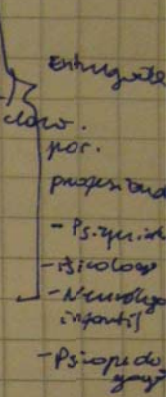 claro.
por.
profesional
- Psiquiat
- Psicologo
- Neurologo
infantil
- Psicopedo
gogo